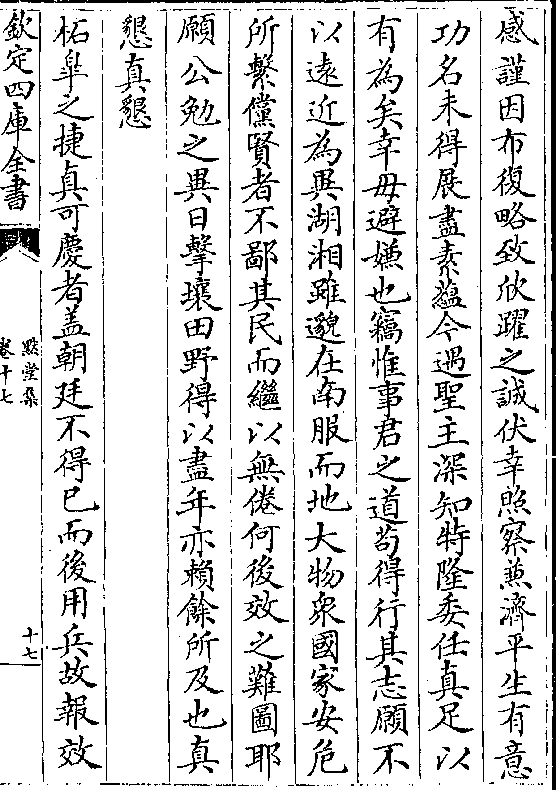 感謹因布復略致欣躍之誠伏幸照察兼濟平生有意
功名未得展盡素蘊今遇聖主深知特隆委任真足以
有為矣幸毋避嫌也竊惟事君之道苟得行其志願不
以遠近為異湖湘雖邈在南服而地大物衆國家安危
所繫儻賢者不鄙其民而繼以無倦何後效之難圖耶
願公勉之異日擊壤田野得以盡年亦賴餘所及也真
懇真懇
柘臯之捷真可慶者盖朝廷不得已而後用兵故報效
欽定四庫全書
默堂集
卷十七
十七